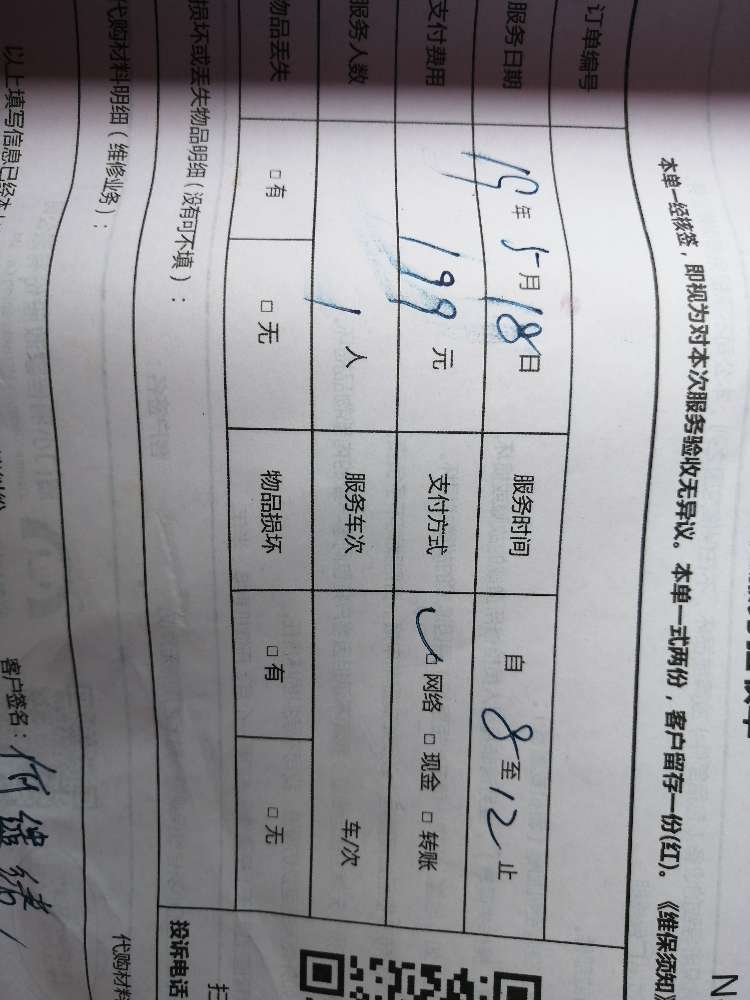 本单一经核签，即视为对本次服务验收无异议。本单一式两份，客户留存一份(红)。《维保须知
订单编号
服务日期 19年5月18日 服务时间 自8至12止
支付费用 199元 支付方式 ✓□网络 □现金 □转账
服务人数 1人 服务车次 车/次
物品丢失 □有 □无 物品损坏 □有 □无
损坏或丢失物品明细(没有可不填)：
投诉电话
代购材料明细(维修业务)：
代购材料
以上填写信息已经本
客户签名：何